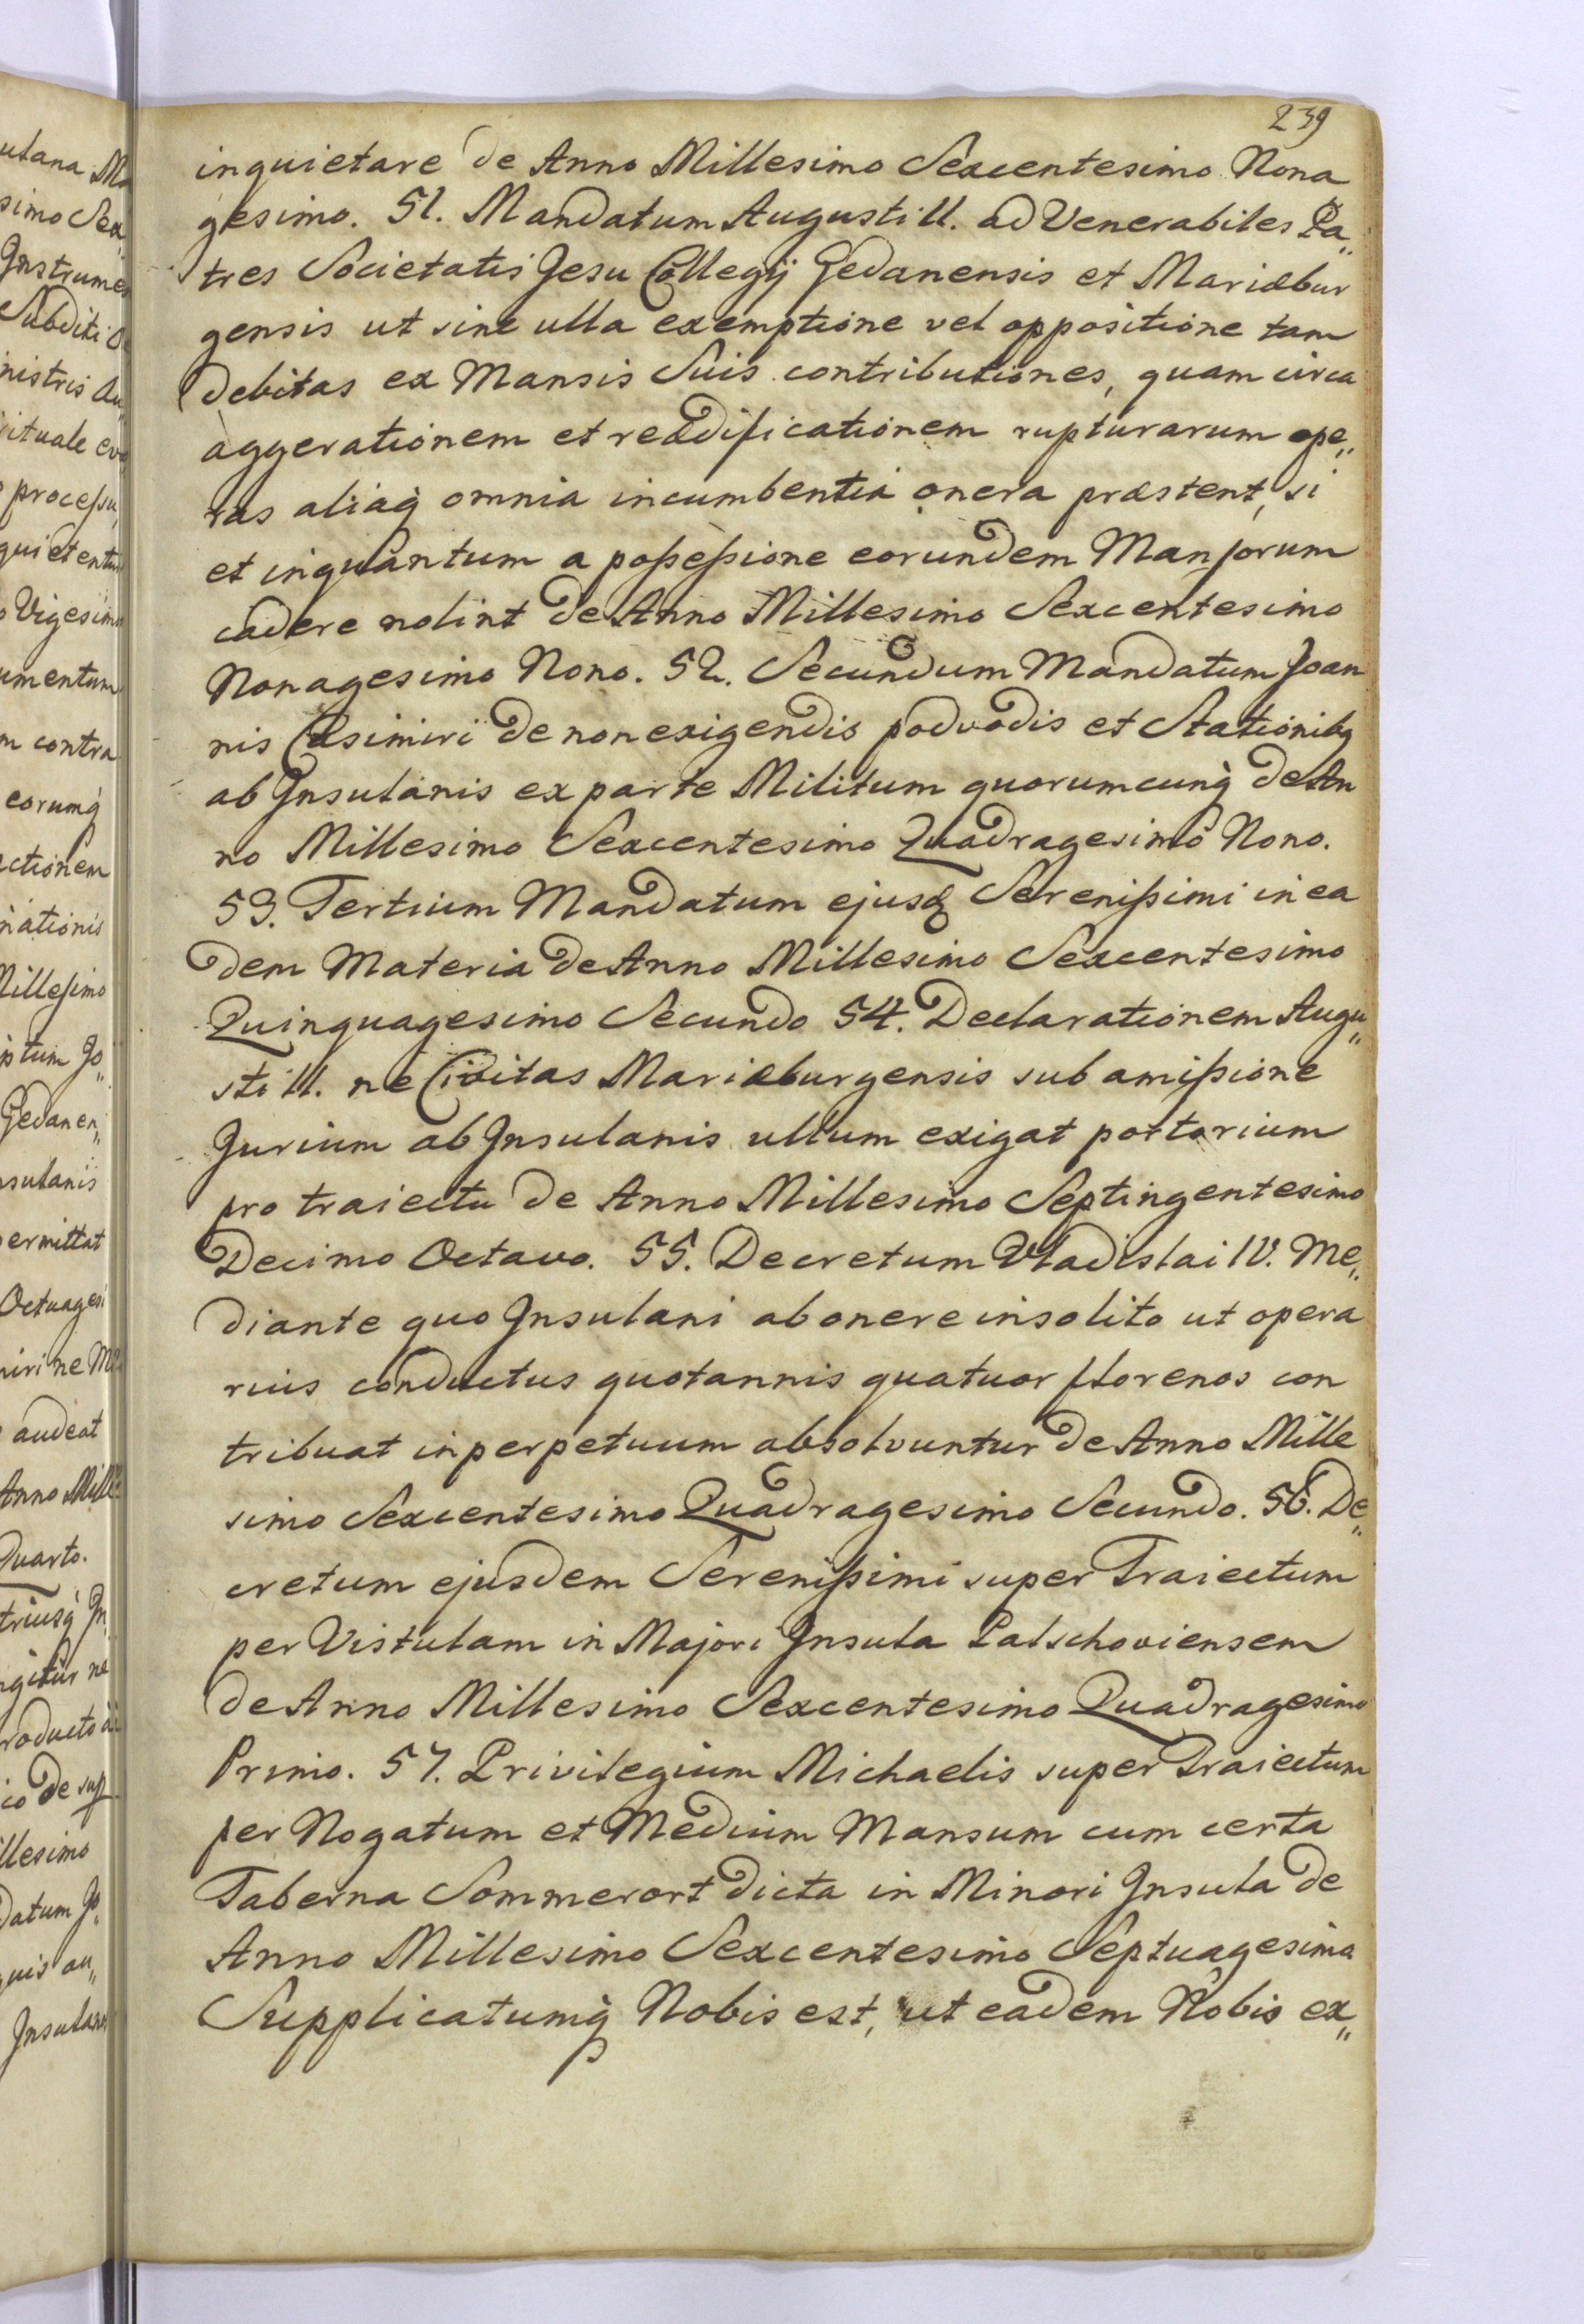 239
inquietare de Anno Millesimo Sexcentesimo Nona
gesimo. 51. Mandatum Augusti II. ad Venerabiles Pa„
tres Societatis Jesu Collegij Gedanensis et Mariæbur
gensis ut sine ulla exemptione vel oppositione tam
debitas ex Mansis Suis contributiones, quam circa
aggerationem et reædificationem rupturarum ope„
ras aliaq́ omnia incumbentia onera præstent, si
et inquantum a poſseſsione eorundem Manſorum
cadere nolint de Anno Millesimo Sexcentesimo
Nonagesimo Nono. 52. Secundum Mandatum Joan
nis Casimiri de non exigendis podvodis et Stationibq
ab Insulanis ex parte Militum quorumcunq́ de An
no Millesimo Sexcentesimo Quadragesimo Nono.
53. Tertium Mandatum ejusd Sereniſsimi in ea
dem Materia de Anno Millesimo Sexcentesimo
Quinquagesimo Secundo 54. Declarationem Augu„
sti II. ne Civitas Mariæburgensis sub amiſsione
Jurium ab Insulanis ullum exigat portorium
pro traiectu de Anno Millesimo Septingentesimo
Decimo Octavo. 55. Decretum Vladislai IV. Me„
diante quo Insulani ab onere insolito ut opera
rius conductus quotannis quatuor florenos con
tribuat in perpetuum absolvuntur de Anno Mille
simo Sexcentesimo Quadragesimo Secundo. 56. De„
cretum ejusdem Sereniſsimi super Traiectum
per Vistulam in Majori Insula Palschoviensem
de Anno Millesimo Sexcentesimo Quadragesimo
Primo. 57. Privilegium Michaelis super Traiectum
per Nogatum et Medium Mansum cum certa
Taberna Sommerort dicta in Minori Insula de
Anno Millesimo Sexcentesimo Septuagesimo
Supplicatumq́ Nobis est, ut eadem Nobis ex„